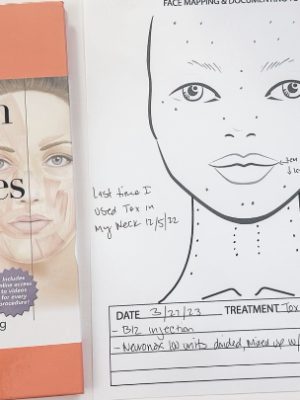 FACE MAPPING & DOCUMENTING
Last time I
used Tox in
My Neck 12/5/22
Includes
online access
to videos
for every
procedure!
DATE 3/27/23 TREATMENT Tox
- B12 injection
- Neuronox 100 units divided, Mixed up w/